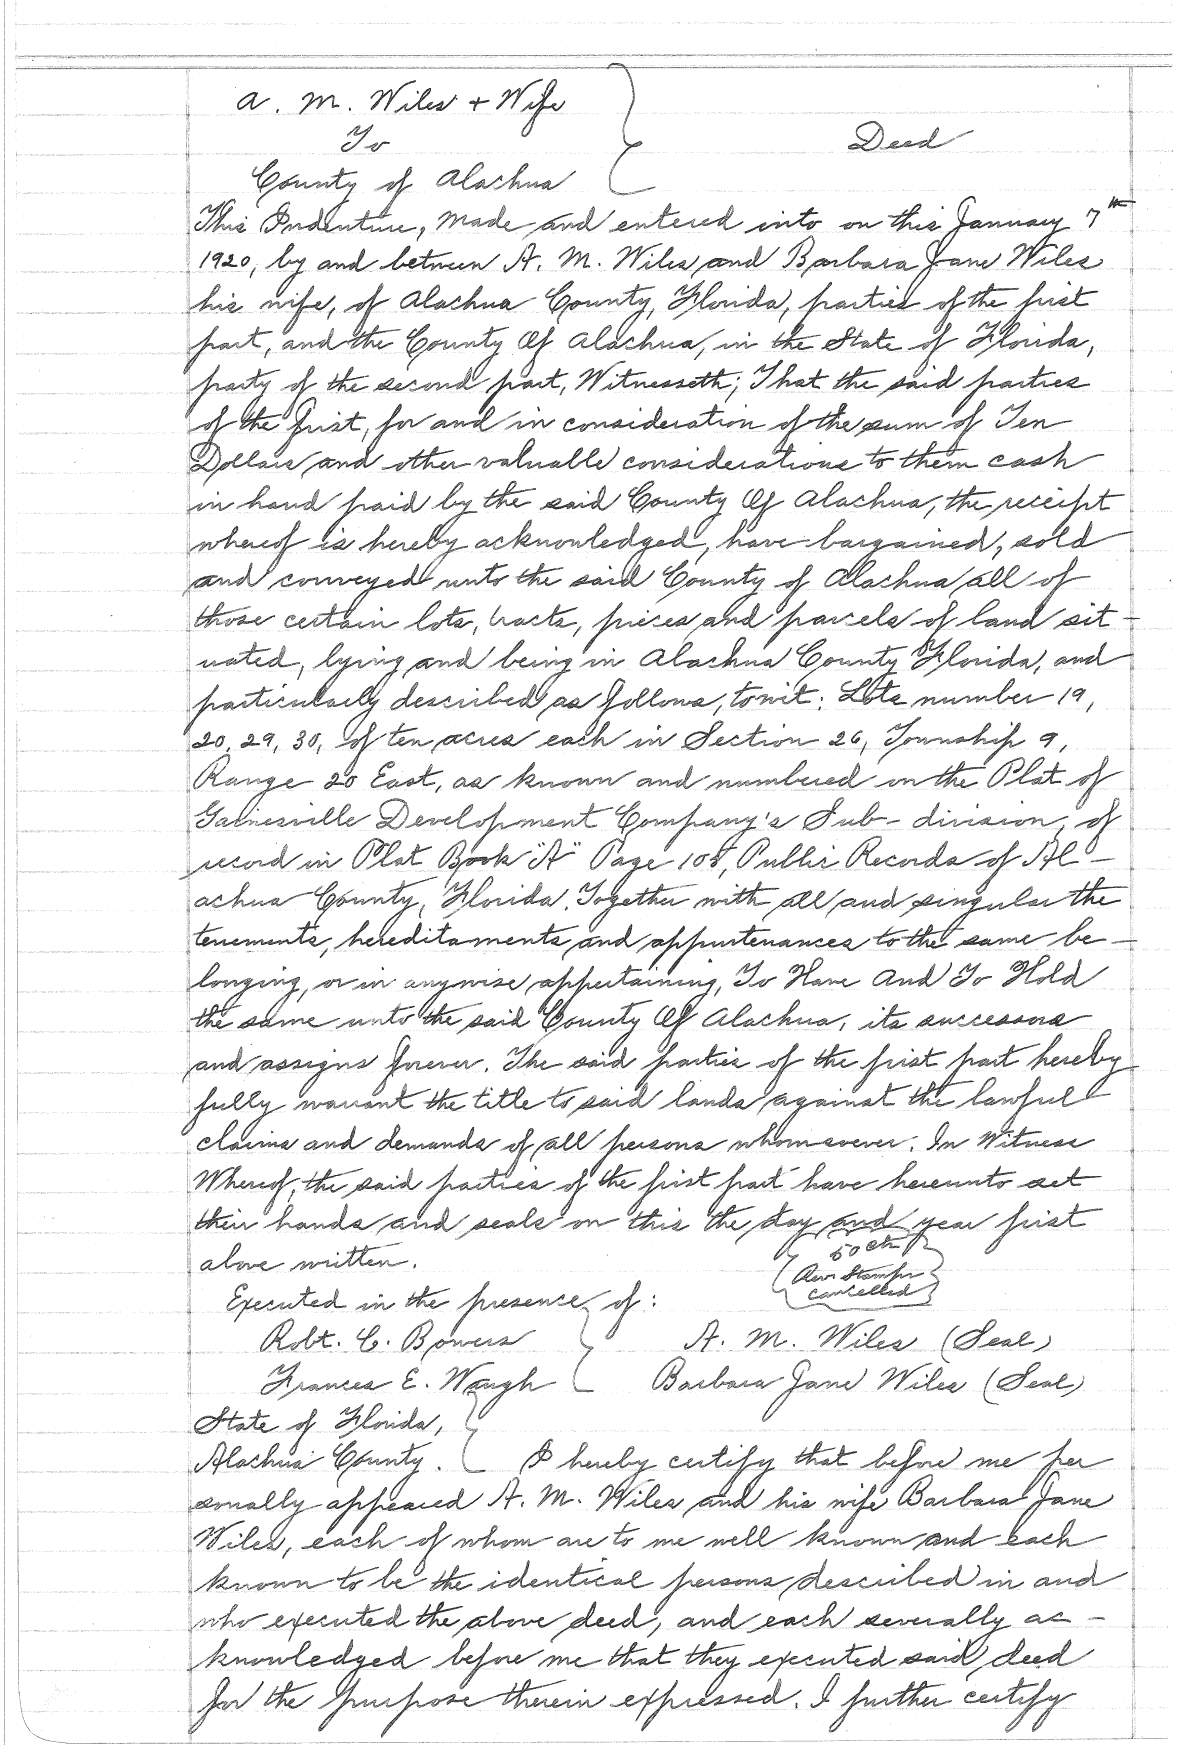 A. M. Wiles + Wife
To
Deed
County of Alachua
This Indenture, Made and entered into on this January 7th
1920, by and between A. M. Wiles and Barbara Jane Wiles
his wife, of Alachua County, Florida, parties of the first
part, and the County Of Alachua, in the State of Florida,
party of the second part, Witnesseth; That the said parties
of the first, for and in consideration of the sum of Ten
Dollars and other valuable considerations to them cash
in hand paid by the said County Of Alachua, the receipt
whereof is hereby acknowledged, have bargained, sold
and conveyed unto the said County of Alachua all of
those certain lots, tracts, pieces and parcels of land sit-
uated, lying and being in Alachua County Florida, and
particularly described as follows, towit: Lots number 19,
20, 29, 30, of ten acres each in Section 26, Township 9,
Range 20 East, as known and numbered on the Plat of
Gainesville Development Company's Sub-division, of
record in Plat Book "A" Page 108, Public Records of Al-
achua County, Florida. Together with all and singular the
tenements, hereditaments and appurtenances to the same be-
longing, or in anywise appertaining, To Have And To Hold
the same unto the said County Of Alachua, its successors
and assigns forever. The said parties of the first part hereby
fully warrant the title to said lands against the lawful
claims and demands of all persons whomsoever. In Witness
Whereof, the said parties of the first part have hereunto set
their hands and seals on this the day and year first
above written.
50 cts
Rev. Stamps
cancelled
Executed in the presence of:
Robt. C. Bowers A. M. Wiles (Seal)
Frances E. Waugh Barbara Jane Wiles (Seal)
State of Florida,
Alachua County. I hereby certify that before me per
sonally appeared A. M. Wiles and his wife Barbara Jane
Wiles, each of whom are to me well known and each
known to be the identical persons described in and
who executed the above deed, and each severally ac-
knowledged before me that they executed said deed
for the purpose therein expressed. I further certify